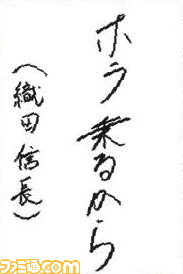 ホラ乗るから
(織田信長)
ファミ通.com